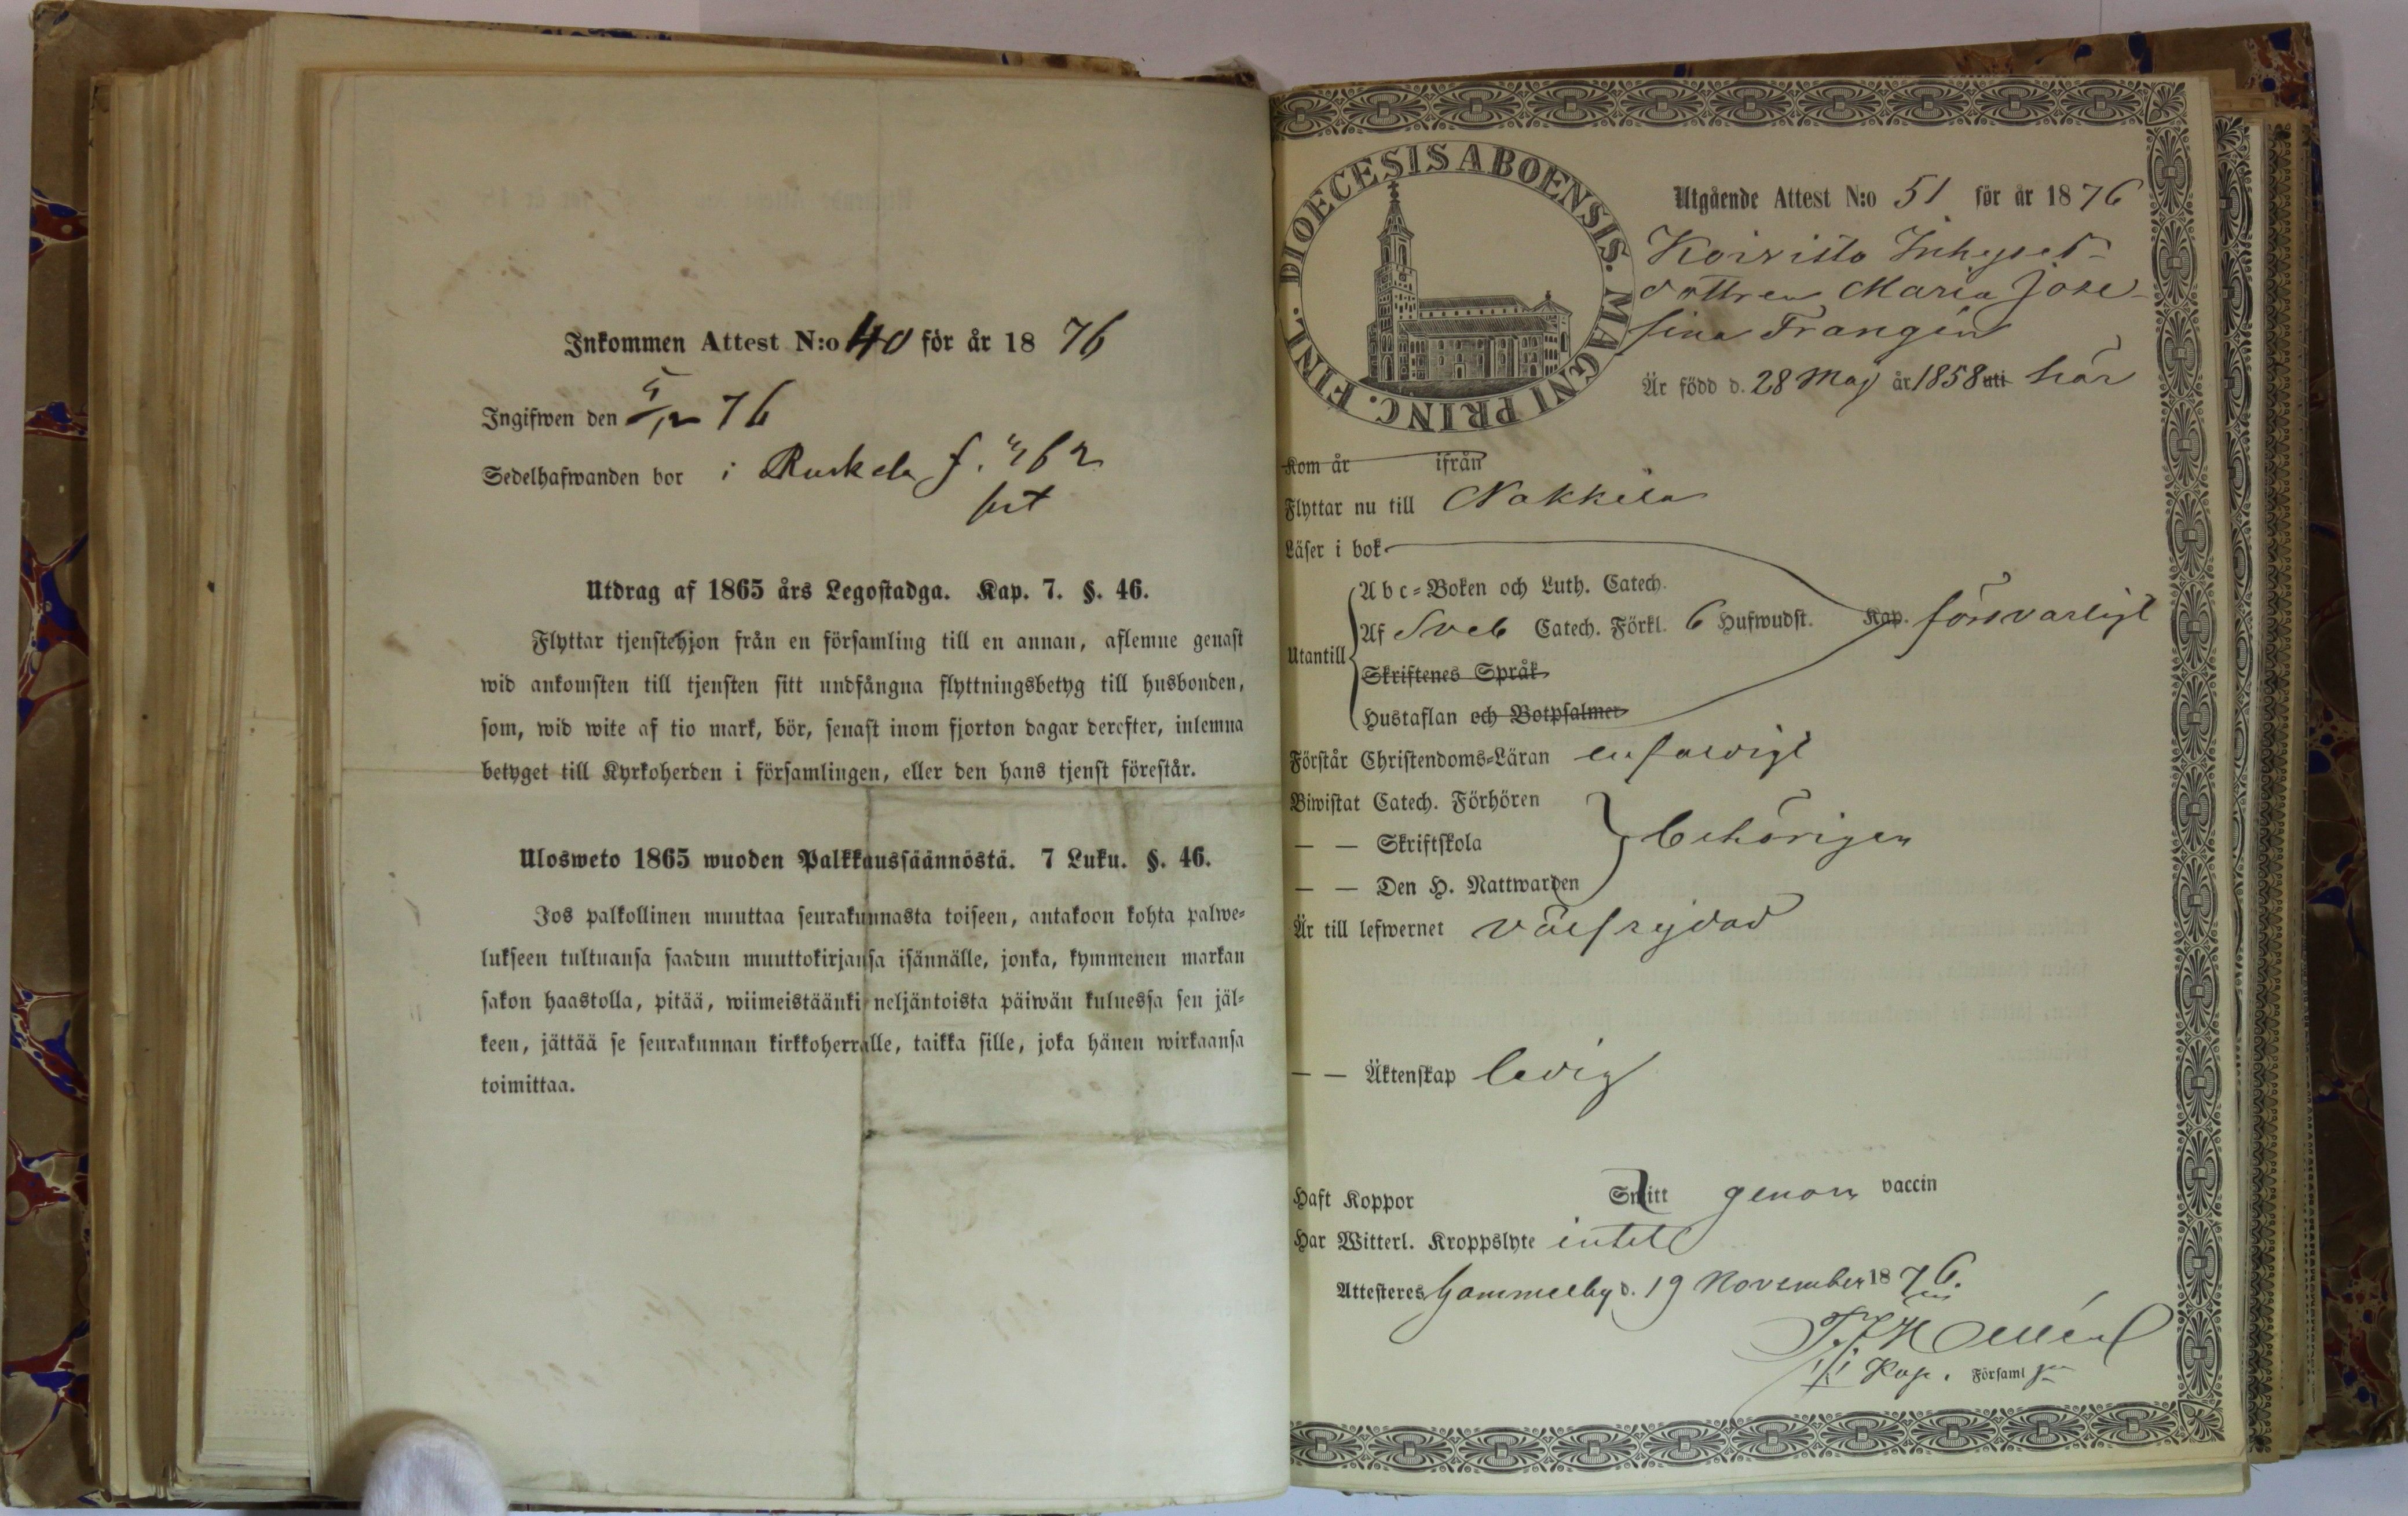 Inkommen Attest N:o 40 för år 1876
Ingifwen den 5/12 76
Sedelhafwanden bor i Ruskela f. 462
Utdrag af 1865 års Legostadga. Kap. 7. §. 46.
Flyttar tjenstehjon från en församling till en annan, aflemne genast
wid ankomsten till tjensten sitt undfångna flyttningsbetyg till husbonden,
som, wid wite af tio mark, bör, senast inom fjorton dagar derefter, inlemna
betyget till Kyrkoherden i församlingen, eller den hans tjenst förestår.
Ulosweto 1865 wuoden Palkkaussäännöstä. 7 Luku. §. 46.
Jos palkollinen muuttaa seurakunnasta toiseen, antakoon kohta palwe=
lukseen tultuansa saadun muuttokirjansa isännälle, jonka, kymmenen markan
sakon haastolla, pitää, wiimeistäänki neljäntoista päiwän kuluessa sen jäl=
keen, jättää se seurakunnan kirkkoherralle, taikka sille, joka hänen wirkaansa
toimittaa.
DIOECESIS ABOENSIS. MAGNI PRINC. FINL.
Utgående Attest N:o 51 för år 1876
Koivisto Inhyses-
dottren Maria Jose-
fina Frangén
Är född d. 28 Maj år 1858 uti här
Kom år ifrån
Flyttar nu till Nakkila
Läser i bok
Abc=Boken och Luth. Catech.
Utantill Af Sveb Catech. Förkl. 6 Hufwudst. Kap. försvarligt
Skriftenes Språk
Hustaflan och Botpsalmer
Förstår Christendoms=Läran enfaldigt
Biwistat Catech. Förhören
— — Skriftskola behörigen
— — Den H. Nattwarden
Är till lefwernet välfrejdad
— — Äktenskap ledig
Haft Koppor Snitt genom vaccin
Har Witterl. Kroppslyte intet
Attesteres Gammelby d. 19 November 1876.
Kap. Församl